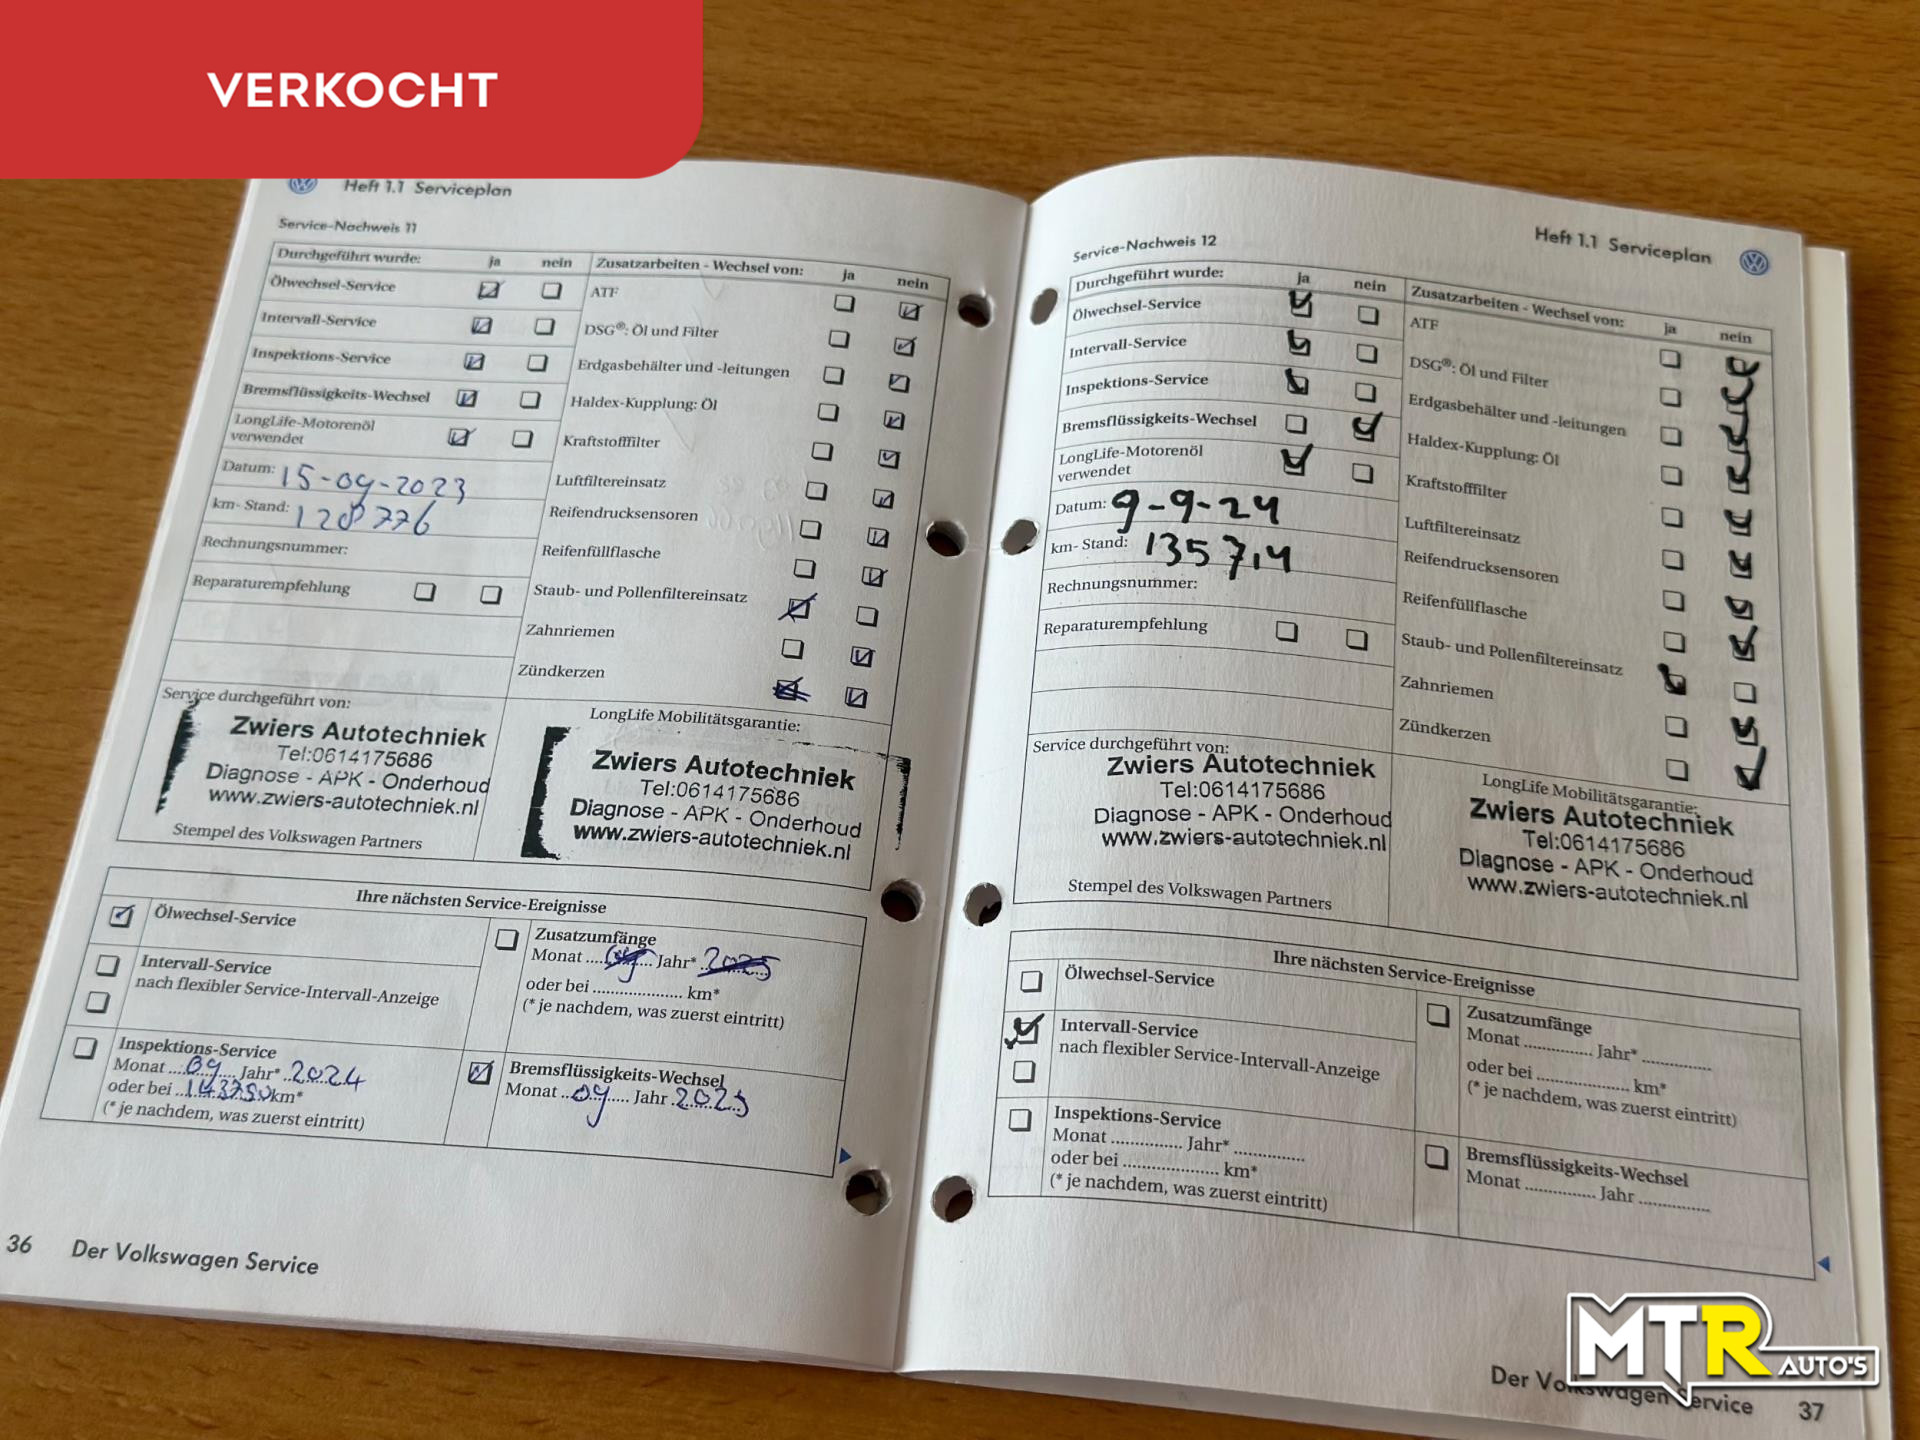 VERKOCHT
Heft 1.1 Serviceplan
Service-Nachweis 11
Durchgeführt wurde: ja nein
Ölwechsel-Service
Intervall-Service
Inspektions-Service
Bremsflüssigkeits-Wechsel
LongLife-Motorenöl
verwendet
Datum: 15-09-2023
km- Stand: 128776
Rechnungsnummer:
Reparaturempfehlung
Zusatzarbeiten - Wechsel von: ja nein
ATF
DSG®: Öl und Filter
Erdgasbehälter und -leitungen
Haldex-Kupplung: Öl
Kraftstofffilter
Luftfiltereinsatz
Reifendrucksensoren
Reifenfüllflasche
Staub- und Pollenfiltereinsatz
Zahnriemen
Zündkerzen
Service durchgeführt von:
Zwiers Autotechniek
Tel:0614175686
Diagnose - APK - Onderhoud
www.zwiers-autotechniek.nl
Stempel des Volkswagen Partners
LongLife Mobilitätsgarantie:
Zwiers Autotechniek
Tel:0614175686
Diagnose - APK - Onderhoud
www.zwiers-autotechniek.nl
Ihre nächsten Service-Ereignisse
Ölwechsel-Service
Intervall-Service
nach flexibler Service-Intervall-Anzeige
Inspektions-Service
Monat ...09..... Jahr* ..2024
oder bei ..143750km*
(* je nachdem, was zuerst eintritt)
Zusatzumfänge
Monat ....09..... Jahr* 2025
oder bei ..................... km*
(* je nachdem, was zuerst eintritt)
Bremsflüssigkeits-Wechsel
Monat ..09..... Jahr 2025
36 Der Volkswagen Service
Heft 1.1 Serviceplan
Service-Nachweis 12
Durchgeführt wurde: ja nein
Ölwechsel-Service
Intervall-Service
Inspektions-Service
Bremsflüssigkeits-Wechsel
LongLife-Motorenöl
verwendet
Datum: 9-9-24
km- Stand: 135714
Rechnungsnummer:
Reparaturempfehlung
Zusatzarbeiten - Wechsel von: ja nein
ATF
DSG®: Öl und Filter
Erdgasbehälter und -leitungen
Haldex-Kupplung: Öl
Kraftstofffilter
Luftfiltereinsatz
Reifendrucksensoren
Reifenfüllflasche
Staub- und Pollenfiltereinsatz
Zahnriemen
Zündkerzen
Service durchgeführt von:
Zwiers Autotechniek
Tel:0614175686
Diagnose - APK - Onderhoud
www.zwiers-autotechniek.nl
Stempel des Volkswagen Partners
LongLife Mobilitätsgarantie:
Zwiers Autotechniek
Tel:0614175686
Diagnose - APK - Onderhoud
www.zwiers-autotechniek.nl
Ihre nächsten Service-Ereignisse
Ölwechsel-Service
Intervall-Service
nach flexibler Service-Intervall-Anzeige
Inspektions-Service
Monat ............... Jahr* ...............
oder bei .................... km*
(* je nachdem, was zuerst eintritt)
Zusatzumfänge
Monat ............... Jahr* ...............
oder bei .................... km*
(* je nachdem, was zuerst eintritt)
Bremsflüssigkeits-Wechsel
Monat ............... Jahr ...............
Der Volkswagen Service 37
MTR AUTO'S